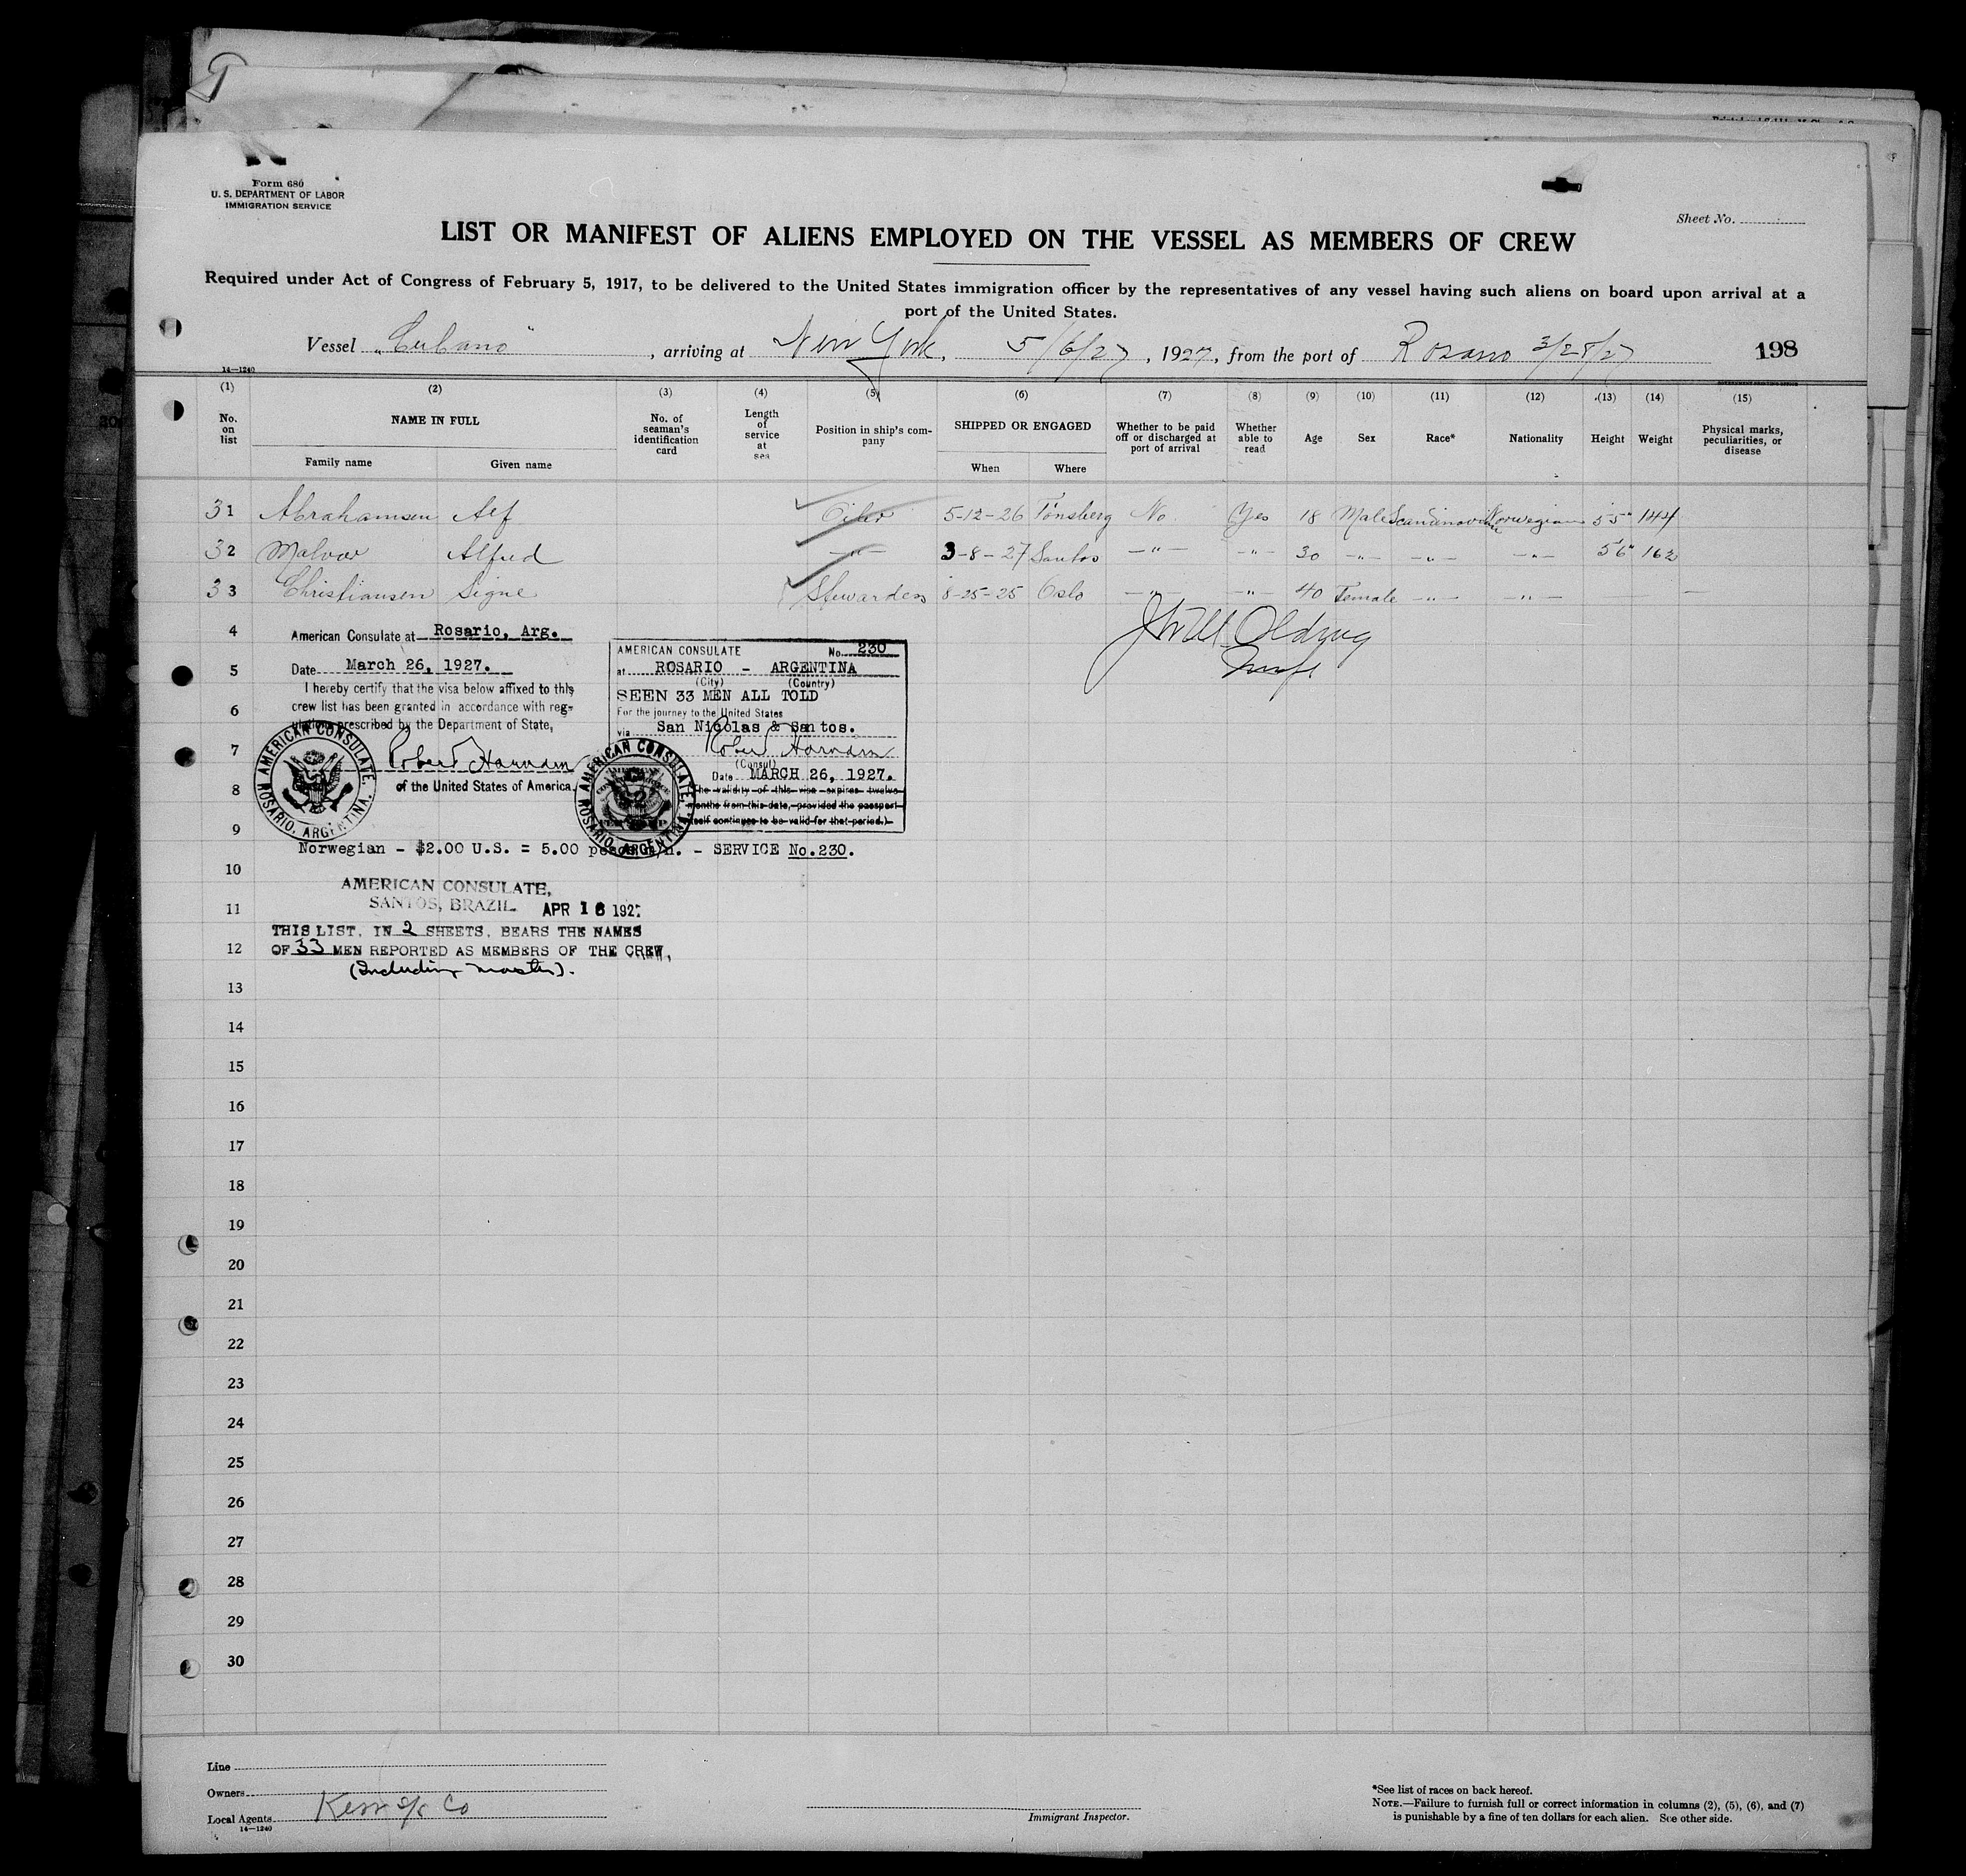 Form 680
U. S. DEPARTMENT OF LABOR
IMMIGRATION SERVICE
Sheet No.
LIST OR MANIFEST OF ALIENS EMPLOYED ON THE VESSEL AS MEMBERS OF CREW
Required under Act of Congress of February 5, 1917, to be delivered to the United States immigration officer by the representatives of any vessel having such aliens on board upon arrival at a
port of the United States.
Vessel "Cubano", arriving at New York, 5/6/27, 1927, from the port of Rosario 3/28/27 198
14—1240
(1) (2) (3) (4) (5) (6) (7) (8) (9) (10) (11) (12) (13) (14) (15)
No. on list
NAME IN FULL
Family name Given name
No. of seaman's identification card
Length of service at sea
Position in ship's company
SHIPPED OR ENGAGED
When Where
Whether to be paid off or discharged at port of arrival
Whether able to read
Age Sex Race* Nationality Height Weight
Physical marks, peculiarities, or disease
31 Abrahamsen Alf Oiler 5-12-26 Tönsberg No Yes 18 Male Scandinavian Norwegian 5'5" 144
32 Malvar Alfred —"— 3-8-27 Santos —"— —"— 30 —"— —"— —"— 5'6" 162
33 Christiansen Signe Stewardess 8-25-25 Oslo —"— —"— 40 Female —"— —"— — —
4
American Consulate at Rosario, Arg.
Date March 26, 1927.
I hereby certify that the visa below affixed to this
crew list has been granted in accordance with reg-
ulations prescribed by the Department of State,
Robert Harnden
of the United States of America.
AMERICAN CONSULATE
ROSARIO, ARGENTINA.
AMERICAN CONSULATE No. 230
at ROSARIO - ARGENTINA
(City) (Country)
SEEN 33 MEN ALL TOLD
For the journey to the United States
via San Nicolas & Santos.
Robert Harnden
(Consul)
Date MARCH 26, 1927.
The validity of this visa expires twelve
months from this date, provided the passport
itself continues to be valid for that period.)
AMERICAN CONSULATE
ROSARIO, ARGENTINA
5
6
7
8
9
Norwegian - $2.00 U.S. = 5.00 pesos m/n. - SERVICE No.230.
10
AMERICAN CONSULATE,
11
SANTOS, BRAZIL APR 16 1927
THIS LIST, IN 2 SHEETS, BEARS THE NAMES
12
OF 33 MEN REPORTED AS MEMBERS OF THE CREW,
(Including master).
13
14
15
16
17
18
19
20
21
22
23
24
25
26
27
28
29
30
Line
Owners
Local Agents Kerr S/S Co
14—1240
Immigrant Inspector.
*See list of races on back hereof.
NOTE.—Failure to furnish full or correct information in columns (2), (5), (6), and (7)
is punishable by a fine of ten dollars for each alien. See other side.